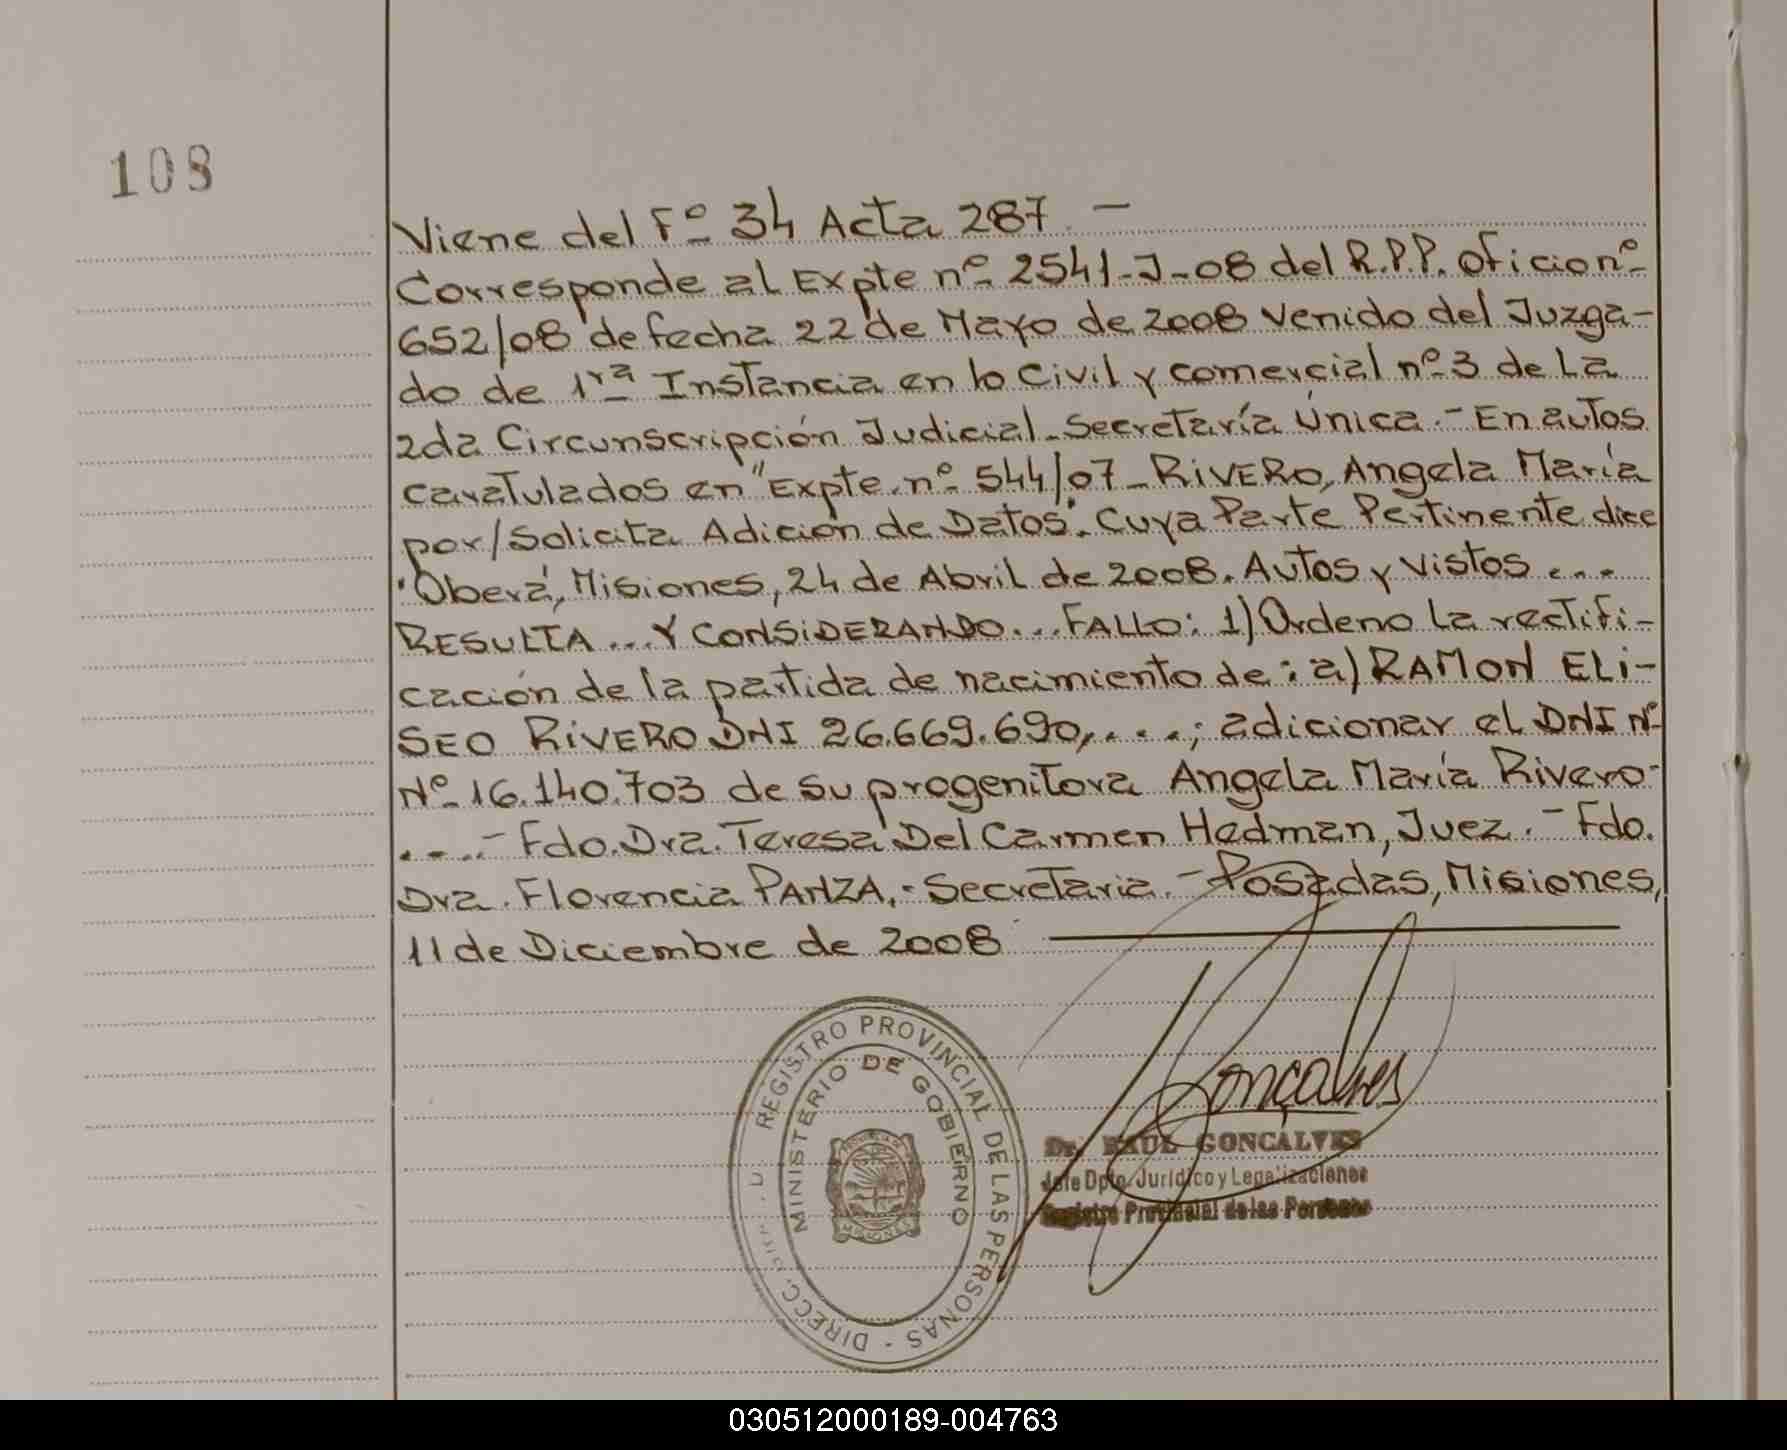 108
Viene del Fº 34 Acta 287. —
Corresponde al Expte nº 2541-J-08 del R.P.P. oficio nº
652/08 de fecha 22 de Mayo de 2008 venido del Juzga-
do de 1ra Instancia en lo Civil y comercial nº 3 de La
2da Circunscripción Judicial - Secretaría Única. - En autos
caratulados en "Expte. nº 544/07 - RIVERO, Angela María
por/Solicita Adición de Datos". Cuya Parte Pertinente dice
"Oberá, Misiones, 24 de Abril de 2008. Autos y vistos ...
RESULTA ... Y CONSIDERANDO ... FALLO: 1) Ordeno la rectifi-
cación de la partida de nacimiento de: a) RAMON ELI-
SEO RIVERO DNI 26.669.690, ....; adicionar el DNI Nº
Nº 16.140.703 de su progenitora Angela María Rivero-
.... - Fdo. Dra. Teresa Del Carmen Hedman, Juez. - Fdo.
Dra. Florencia PANZA. - Secretaria. - Posadas, Misiones,
11 de Diciembre de 2008
REGISTRO PROVINCIAL DE LAS PERSONAS - DIRECC.
MINISTERIO DE GOBIERNO
Gonçalves
Dr. RAUL GONCALVES
Jefe Dpto. Jurídico y Legalizaciones
Registro Provincial de las Personas
030512000189-004763